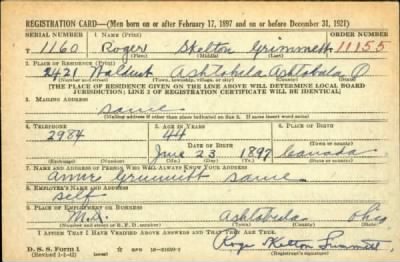 REGISTRATION CARD—(Men born on or after February 17, 1897 and on or before December 31, 1921)
SERIAL NUMBER 1. NAME (Print) ORDER NUMBER
T 1160 Roger Skelton Grimmett 11155
(First) (Middle) (Last)
2. PLACE OF RESIDENCE (Print)
2421 Walnut Ashtabula Ashtabula O
(Number and street) (Town, township, village, or city) (County) (State)
[THE PLACE OF RESIDENCE GIVEN ON THE LINE ABOVE WILL DETERMINE LOCAL BOARD
JURISDICTION; LINE 2 OF REGISTRATION CERTIFICATE WILL BE IDENTICAL]
3. MAILING ADDRESS
same
[Mailing address if other than place indicated on line 2. If same insert word same]
4. TELEPHONE 5. AGE IN YEARS 6. PLACE OF BIRTH
2984 44
DATE OF BIRTH (Town or county)
June 23 1897 Canada
(Exchange) (Number) (Mo.) (Day) (Yr.) (State or country)
7. NAME AND ADDRESS OF PERSON WHO WILL ALWAYS KNOW YOUR ADDRESS
Grimmett same
8. EMPLOYER'S NAME AND ADDRESS
self
9. PLACE OF EMPLOYMENT OR BUSINESS
M.D. Ashtabula Ohio
(Number and street or R. F. D. number) (Town) (County) (State)
I AFFIRM THAT I HAVE VERIFIED ABOVE ANSWERS AND THAT THEY ARE TRUE.
Roger Skelton Grimmett
D. S. S. Form 1
(Revised 1-1-42) (over) (Registrant's signature)